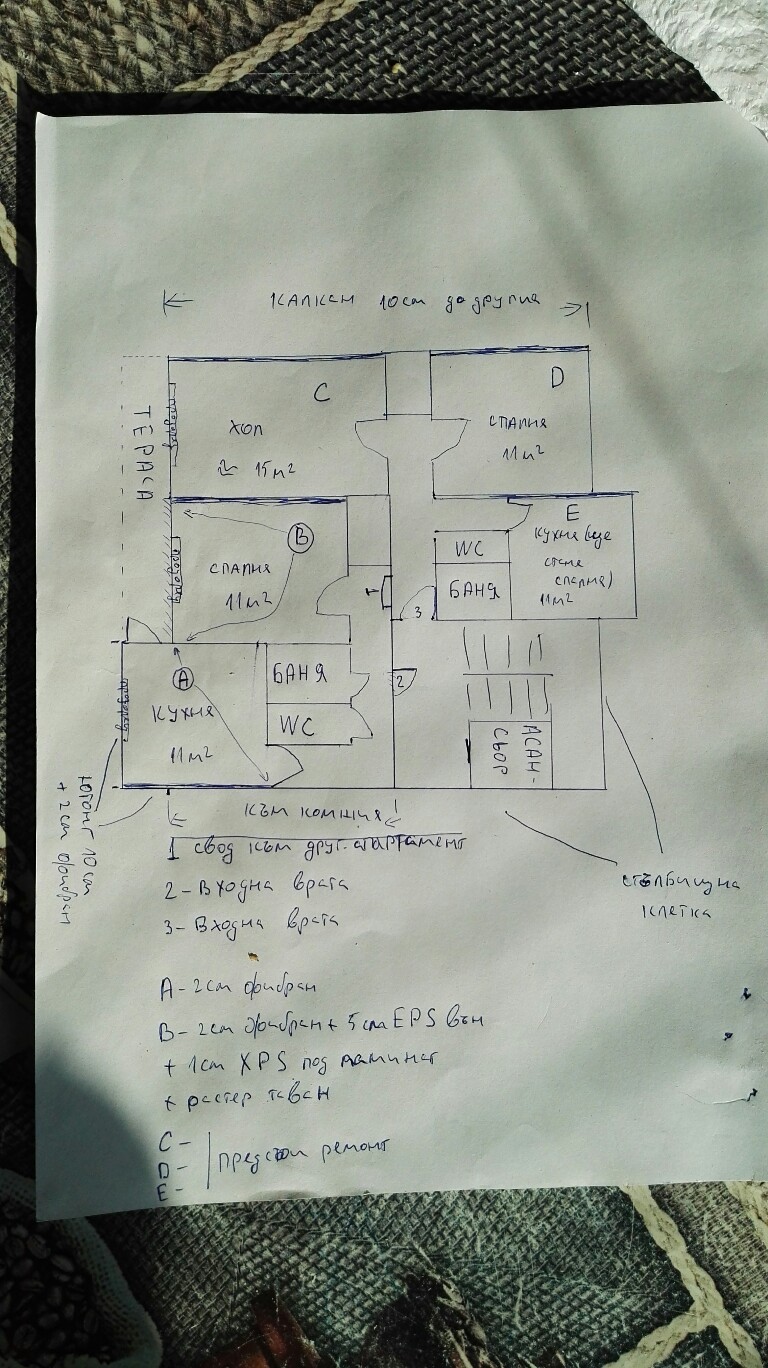 КАЛКАН 10cm до другия
C
D
ХОЛ
≈ 15 м²
СПАЛНЯ
11 м²
ТЕРАСА
B
СПАЛНЯ
11 м²
E
КУХНЯ (ще
стане
спалня)
11 м²
WC
БАНЯ
1
3
2
A
КУХНЯ
11 м²
БАНЯ
WC
АСАН-
СЬОР
ютонг 10 cm
+ 2 cm фибран
към комшия
1 свод към друг. апартамент
2 - Входна врата
3 - Входна врата
стълбищна
клетка
A - 2 cm фибран
B - 2 cm фибран + 5 cm EPS вън
+ 1 cm XPS под ламинат
+ растер таван
C -
D -
E -
Предстои ремонт